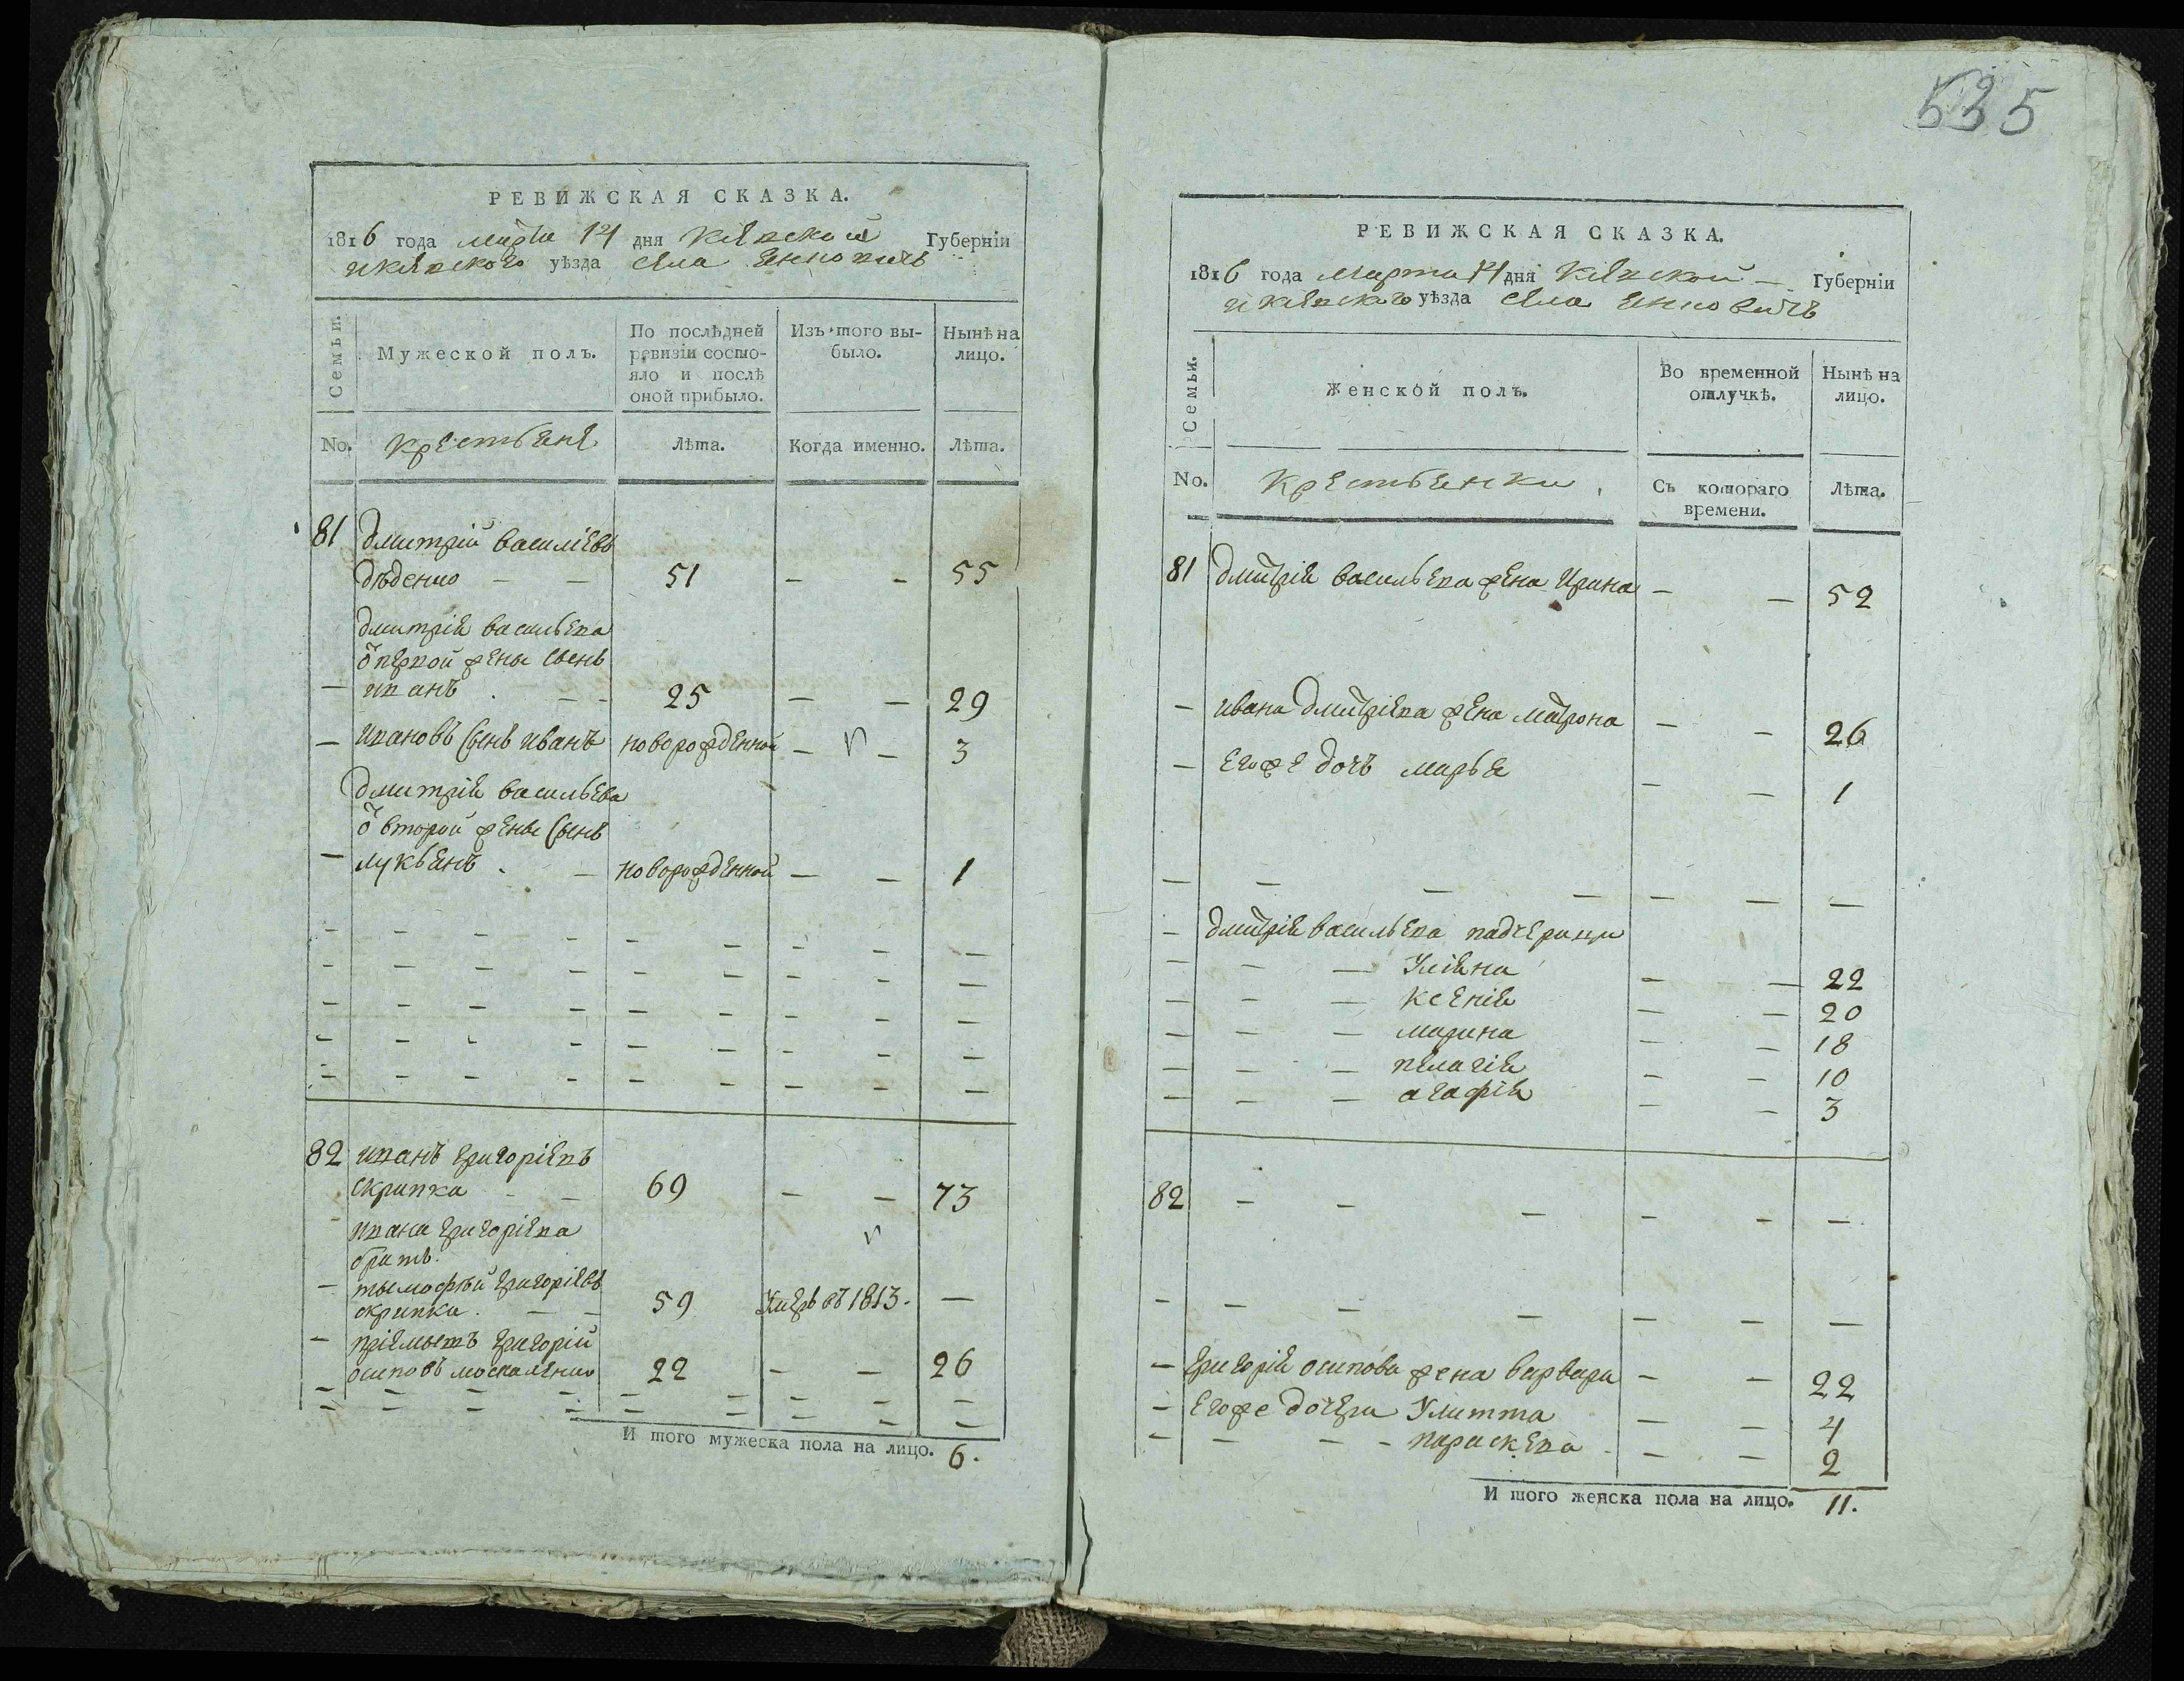 535
РЕВИЖСКАЯ СКАЗКА.
1816 года марта 14 дня Кіевской Губерніи
и кіевского уѣзда села Янковичь
Семьи.
Мужеской полъ.
По послѣдней ревизіи состояло и послѣ оной прибыло.
Изъ того выбыло.
Нынѣ на лицо.
No. крестьяне Лѣта. Когда именно. Лѣта.
81 Дмитрій василіевъ
дѣденко — — 51 — — 55
дмитрія васильева
ѿ первой жены сынъ
— иванъ . — — 25 — — 29
— ивановъ сынъ иванъ новорожденной — — 3
дмитрія васильева
ѿ второй жены сынъ
— лукьянъ . — новорожденной — — 1
82 иванъ григоріевъ
скрипка — — 69 — — 73
— ивана григоріева
братъ.
— тымофѣй григоріевъ
скрипка . — — 59 Умеръ въ 1813. —
— пріемышъ григорій
осиповъ москаленко 22 — — 26
И того мужеска пола на лицо. 6.
РЕВИЖСКАЯ СКАЗКА.
1816 года марта 14 дня Кіевской — Губерніи
и кіевского уѣзда села Янковичь
Семьи.
Женской полъ.
Во временной отлучкѣ.
Нынѣ на лицо.
No. Крестьянки Съ котораго времени. Лѣта.
81 Дмитрія васильева жена Ирина — — 52
— ивана дмитріева жена матрона — — 26
— Его же дочь марья — — 1
— — — — — — —
— дмитрія васильева падчерицы
— — — Уліяна — — 22
— — — ксенія — — 20
— — — марина — — 18
— — — пелагія — — 10
— — — агафія — — 3
82 — — — — — —
— — — — — — —
— григорія осипова жена варвара — — 22
— Его же дочери Улитта — — 4
— — — — параскева . — — 2
И того женска пола на лицо. 11.